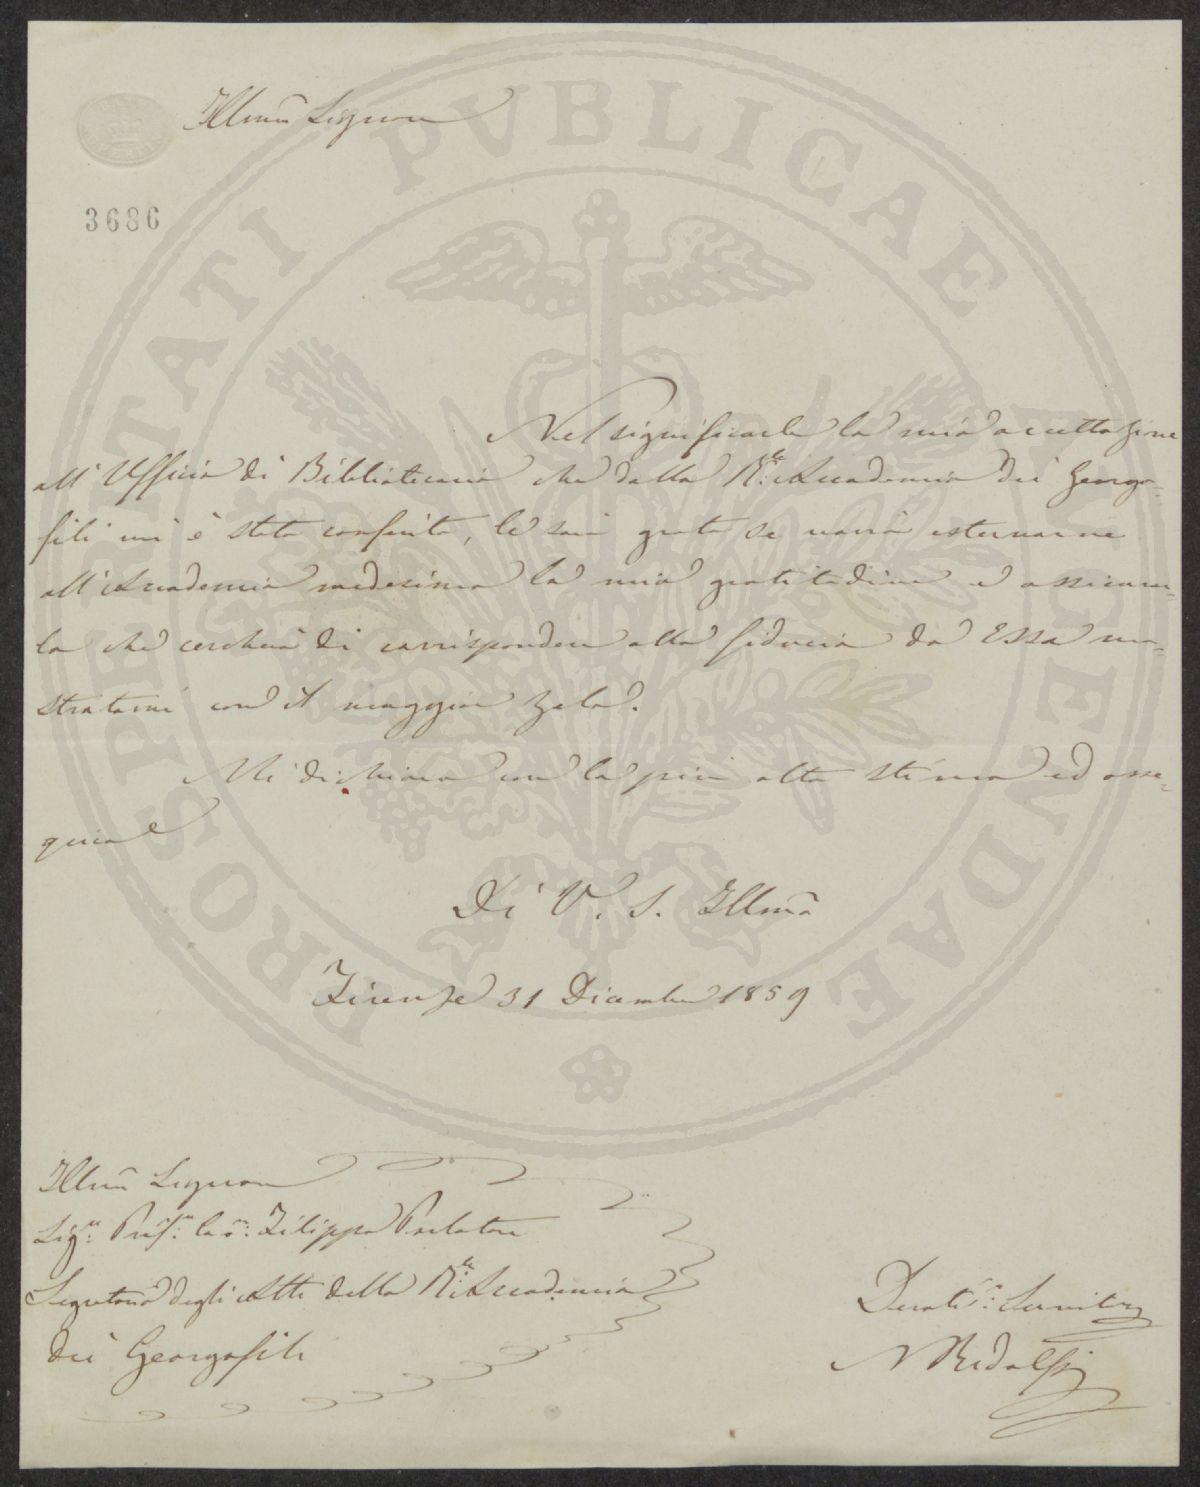 Illmo Signore
3686
Nel significarle la mia accettazione
all'Ufficio di Bibliotecario che dalla R.le Accademia dei Georgo-
fili mi è stato conferito, le sarò grato se vorrà esternarne
all'Accademia medesima la mia gratitudine e assicurar-
la che cercherò di corrispondere alla fiducia da Essa mo-
stratami con il maggior zelo.
Mi dichiaro con la più alta stima ed osse-
quio
Di V. S. Illma
Firenze 31 Dicembre 1859
Illmo Signore
Sig.re Prof.re Cav.re Filippo Parlatore
Segretario degli Atti della R.le Accademia
dei Georgofili
Devot.mo Servitore
N Ridolfi
PROSPERITATI PVBLICAE AVGENDAE